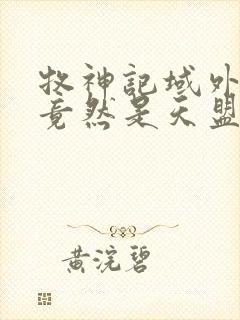 牧神記域外
竟然是天盟
黄浣碧